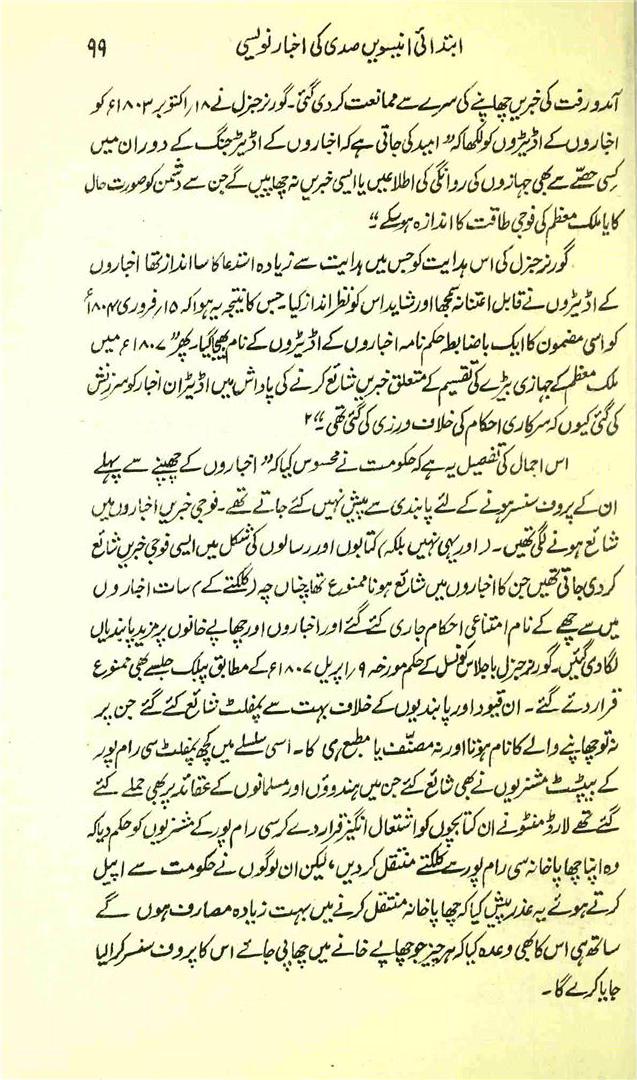 ابتدائی انیسویں صدی کی اخبار نویسی ۹۹
آمد و رفت کی خبریں چھاپنے کی سرے سے ممانعت کر دی گئی۔ گورنر جنرل نے ۱۸ اکتوبر ۱۸۰۳ء کو
اخباروں کے اڈیٹروں کو لکھا کہ "امید کی جاتی ہے کہ اخباروں کے اڈیٹر جنگ کے دوران میں
کسی حصّے سے بھی جہازوں کی روانگی کی اطلاعیں یا ایسی خبریں نہ چھاپیں گے جن سے دشمن کو صورت حال
کا یا ملک معظم کی فوجی طاقت کا اندازہ ہو سکے۔"
گورنر جنرل کی اس ہدایت کو جس میں ہدایت سے زیادہ استدعا کا سا انداز تھا اخباروں
کے اڈیٹروں نے قابل اعتنا نہ سمجھا اور شاید اس کو نظر انداز کیا۔ جس کا نتیجہ یہ ہوا کہ ۱۵ فروری ۱۸۰۴ء
کو اسی مضمون کا ایک باضابطہ حکم نامہ اخباروں کے اڈیٹروں کے نام بھیجا گیا۔ پھر "۱۸۰۷ء میں
ملک معظم کے جہازی بیڑے کی تقسیم کے متعلق خبریں شائع کرنے کی پاداش میں اڈیٹران اخبار کو سرزنش
کی گئی کیوں کہ سرکاری احکام کی خلاف ورزی کی گئی تھی۔" ۲
اس اجمال کی تفصیل یہ ہے کہ حکومت نے محسوس کیا کہ "اخباروں کے چھپنے سے پہلے
ان کے پروف سنسر ہونے کے لئے پابندی سے پیش نہیں کئے جاتے تھے۔ فوجی خبریں اخباروں میں
شائع ہونے لگی تھیں۔ (اور یہی نہیں بلکہ) کتابوں اور رسالوں کی شکل میں ایسی فوجی خبریں شائع
کر دی جاتی تھیں جن کا اخباروں میں شائع ہونا ممنوع تھا چناں چہ (کلکتے کے) سات اخباروں
میں سے چھے کے نام امتناعی احکام جاری کئے گئے اور اخباروں اور چھاپے خانوں پر مزید پابندیاں
لگا دی گئیں۔ گورنر جنرل باجلاس کونسل کے حکم مورخہ ۹ اپریل ۱۸۰۷ء کے مطابق پبلک جلسے بھی ممنوع
قرار دئے گئے۔ ان قیود اور پابندیوں کے خلاف بہت سے پمفلٹ شائع کئے گئے جن پر
نہ تو چھاپنے والے کا نام ہوتا اور نہ مصنّف یا مطبع ہی کا۔ اسی سلسلے میں کچھ پمفلٹ سی رام پور
کے بپٹسٹ مشنریوں نے بھی شائع کئے جن میں ہندوؤں اور مسلمانوں کے عقائد پر بھی حملے کئے
گئے تھے لارڈ منٹو نے ان کتابچوں کو اشتعال انگیز قرار دے کر سی رام پور کے مشنریوں کو حکم دیا کہ
وہ اپنا چھاپا خانہ سی رام پور سے کلکتے منتقل کر دیں، لیکن ان لوگوں نے حکومت سے اپیل
کرتے ہوئے یہ عذر پیش کیا کہ چھاپا خانہ منتقل کرنے میں بہت زیادہ مصارف ہوں گے
ساتھ ہی اس کا بھی وعدہ کیا کہ ہر چیز جو چھاپے خانے میں چھاپی جائے اس کا پروف سنسر کرا لیا
جایا کرے گا۔